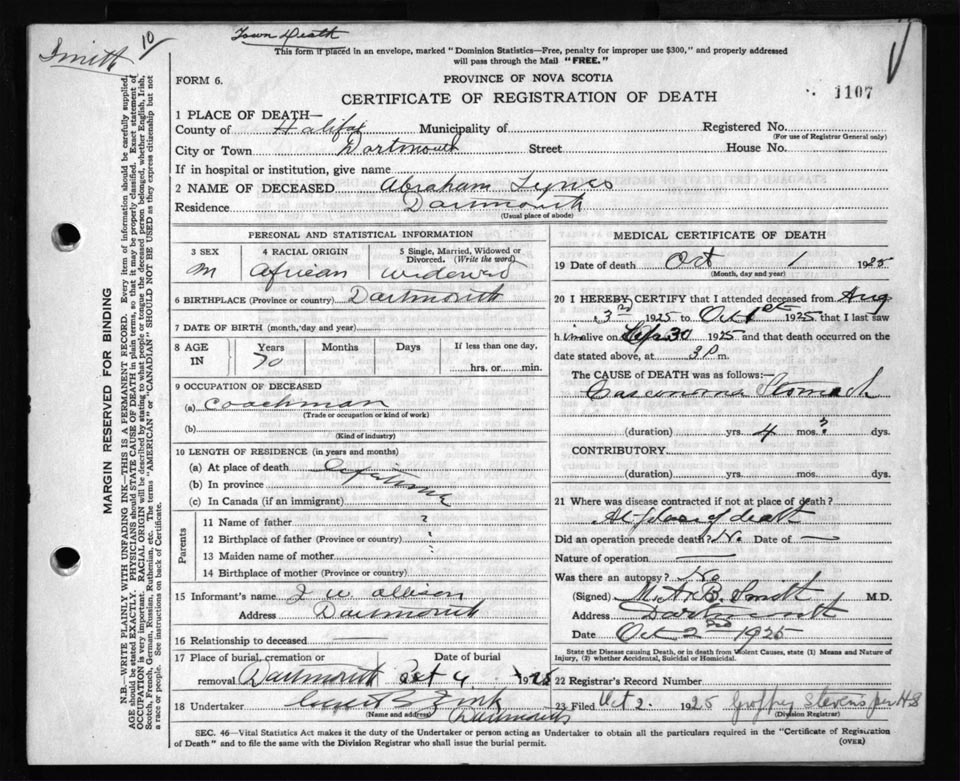 Smith 10/
Town Death
This form if placed in an envelope, marked "Dominion Statistics—Free, penalty for improper use $300," and properly addressed
will pass through the Mail "FREE."
FORM 6.
PROVINCE OF NOVA SCOTIA
CERTIFICATE OF REGISTRATION OF DEATH
1107
1 PLACE OF DEATH—
County of Halifax Municipality of Registered No.
(For use of Registrar General only)
City or Town Dartmouth Street House No.
If in hospital or institution, give name
2 NAME OF DECEASED Abraham Lynes
Residence Dartmouth
(Usual place of abode)
PERSONAL AND STATISTICAL INFORMATION
3 SEX 4 RACIAL ORIGIN 5 Single, Married, Widowed or Divorced. (Write the word)
M African widowed
6 BIRTHPLACE (Province or country) Dartmouth
7 DATE OF BIRTH (month, day and year)
8 AGE IN Years Months Days If less than one day,
70 hrs. or min.
9 OCCUPATION OF DECEASED
(a) Coachman
(Trade or occupation or kind of work)
(b)
(Kind of industry)
10 LENGTH OF RESIDENCE (in years and months)
(a) At place of death lifetime
(b) In province
(c) In Canada (if an immigrant)
Parents
11 Name of father ?
12 Birthplace of father (Province or country)
13 Maiden name of mother
14 Birthplace of mother (Province or country)
15 Informant's name J W Allison
Address Dartmouth
16 Relationship to deceased
17 Place of burial, cremation or removal Dartmouth Date of burial Oct 4 1925
18 Undertaker Zink
(Name and address) Dartmouth
MEDICAL CERTIFICATE OF DEATH
19 Date of death Oct 1 1925
(Month, day and year)
20 I HEREBY CERTIFY that I attended deceased from Aug
3rd 1925 to Oct 1st 1925 that I last saw
him alive on Sep 30 1925 and that death occurred on the
date stated above, at 3 P m.
The CAUSE OF DEATH was as follows:—
Carcinoma Stomach
(duration) yrs. 4 mos. ? dys.
CONTRIBUTORY
(duration) yrs. mos. dys.
21 Where was disease contracted if not at place of death?
At place of death
Did an operation precede death? No Date of —
Nature of operation —
Was there an autopsy? No
(Signed) B. Smith M.D.
Address Dartmouth
Date Oct 2nd 1925
State the Disease causing Death, or in death from Violent Causes, state (1) Means and Nature of
Injury, (2) whether Accidental, Suicidal or Homicidal.
22 Registrar's Record Number
23 Filed Oct 2. 1925 Stevens per HS
(Division Registrar)
SEC. 46—Vital Statistics Act makes it the duty of the Undertaker or person acting as Undertaker to obtain all the particulars required in the "Certificate of Registration
of Death" and to file the same with the Division Registrar who shall issue the burial permit. (OVER)
MARGIN RESERVED FOR BINDING
N.B.—WRITE PLAINLY WITH UNFADING INK—THIS IS A PERMANENT RECORD. Every item of information should be carefully supplied.
AGE should be stated EXACTLY. PHYSICIANS should STATE CAUSE OF DEATH in plain terms, so that it may be properly classified. Exact statement of
OCCUPATION is very important. RACIAL ORIGIN will be described by stating to what people or tongue the deceased person belonged, whether English, Irish,
Scotch, French, German, Russian, Ruthenian, etc. The terms "AMERICAN" or "CANADIAN" SHOULD NOT BE USED as they express citizenship but not
a race or people. See instructions on back of Certificate.